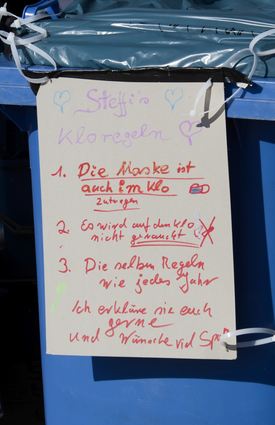 Steffi's
Kloregeln
1. Die Maske ist
auch im Klo
zutragen
2. Es wird auf den Klo
nicht geraucht
3. Die selben Regeln
wie jedes Jahr
Ich erkläre sie euch
gerne
und Wünsche viel Spaß